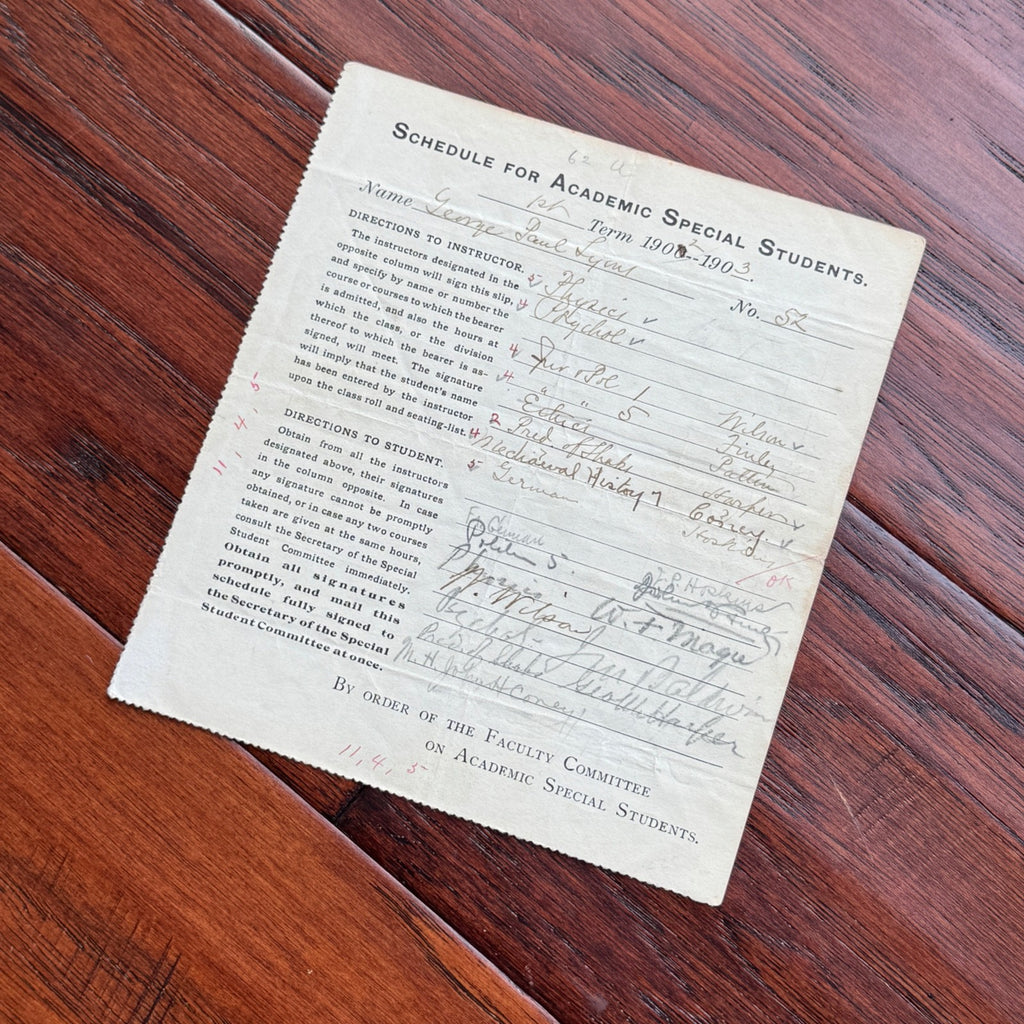 62
SCHEDULE FOR ACADEMIC SPECIAL STUDENTS.
Term 1902-1903.
Name George Paul Lyons No. 52
DIRECTIONS TO INSTRUCTOR.
The instructors designated in the
opposite column will sign this slip,
and specify by name or number the
course or courses to which the bearer
is admitted, and also the hours at
which the class, or the division
thereof to which the bearer is as-
signed, will meet. The signature
will imply that the student's name
has been entered by the instructor
upon the class roll and seating-list.
DIRECTIONS TO STUDENT.
Obtain from all the instructors
designated above, their signatures
in the column opposite. In case
any signature cannot be promptly
obtained, or in case any two courses
taken are given at the same hours,
consult the Secretary of the Special
Student Committee immediately.
Obtain all signatures
promptly, and mail this
schedule fully signed to
the Secretary of the Special
Student Committee at once.
5 Physics ✓
4 Psychol ✓
4 Jur & Pol 1 Wilson ✓
4 " " 5 Finley
Ethics Patton
2 Pred. of Shaks Harper ✓
4 Mediaeval History 7 Coney ✓
5 German Hoskins
OK
German Hoskins
5. John H Finley
W. Wilson W. F. Magie
Pred of Shaks Geo M Harper
M. H. John H Coney
11, 4, 5
11, 4, 5
BY ORDER OF THE FACULTY COMMITTEE
ON ACADEMIC SPECIAL STUDENTS.